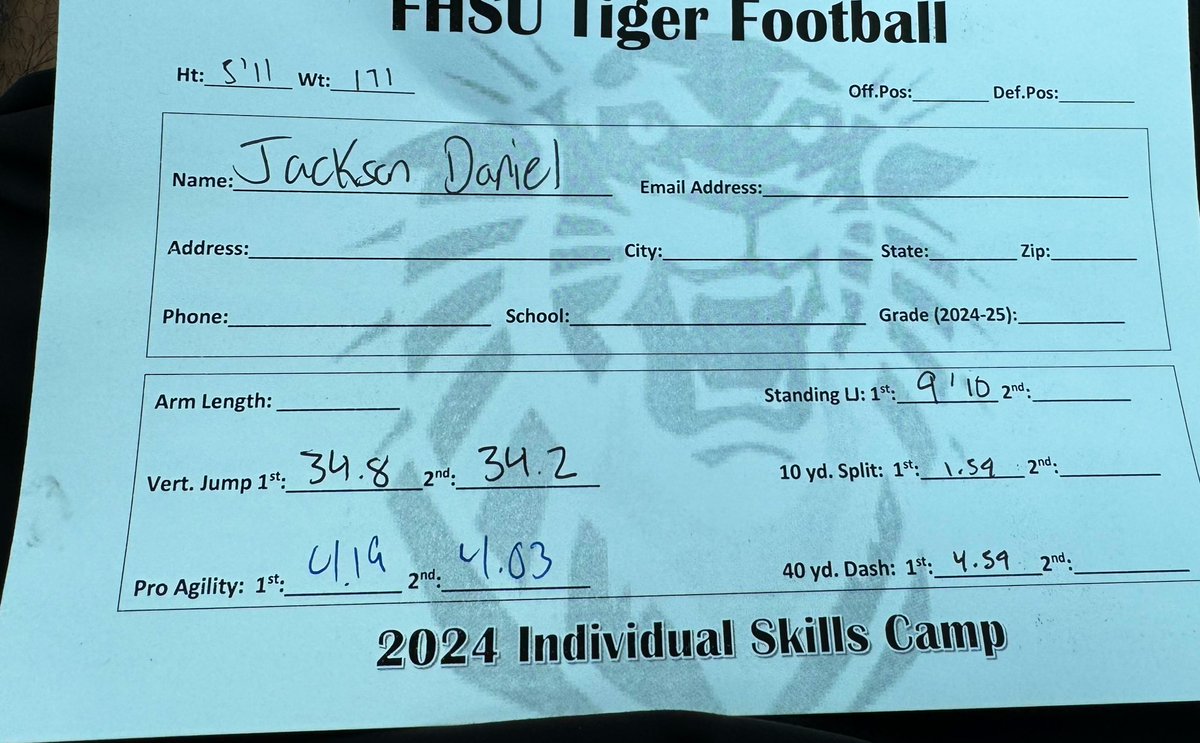 FHSU Tiger Football
Ht: 5'11 Wt: 171 Off.Pos: Def.Pos:
Name: Jackson Daniel Email Address:
Address: City: State: Zip:
Phone: School: Grade (2024-25):
Arm Length: Standing LJ: 1st: 9'10 2nd:
Vert. Jump 1st: 34.8 2nd: 34.2 10 yd. Split: 1st: 1.59 2nd:
Pro Agility: 1st: 4.19 2nd: 4.03 40 yd. Dash: 1st: 4.59 2nd:
2024 Individual Skills Camp